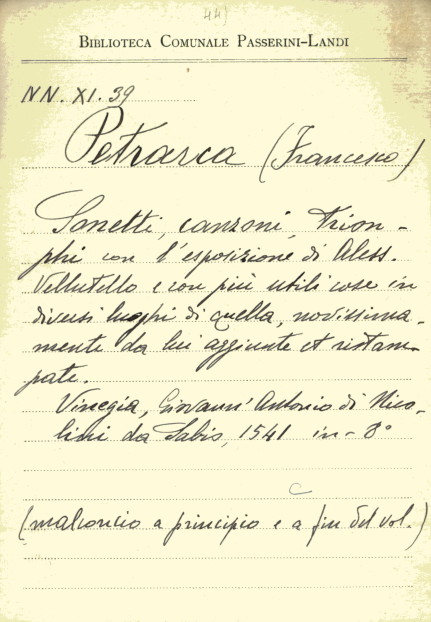 44)
BIBLIOTECA COMUNALE PASSERINI-LANDI
NN. XI. 39
Petrarca (Francesco)
Sonetti, canzoni, trion-
phi con l'esposizione di Aless.
Vellutello e con più utili cose in
diversi luoghi di quella, novissima-
mente da lui aggiunte et ristam-
pate.
Vinegia, Giovann' Antonio di Nico-
lini da Sabio, 1541 in-8°
C
(malconcio a principio e a fin del vol.)